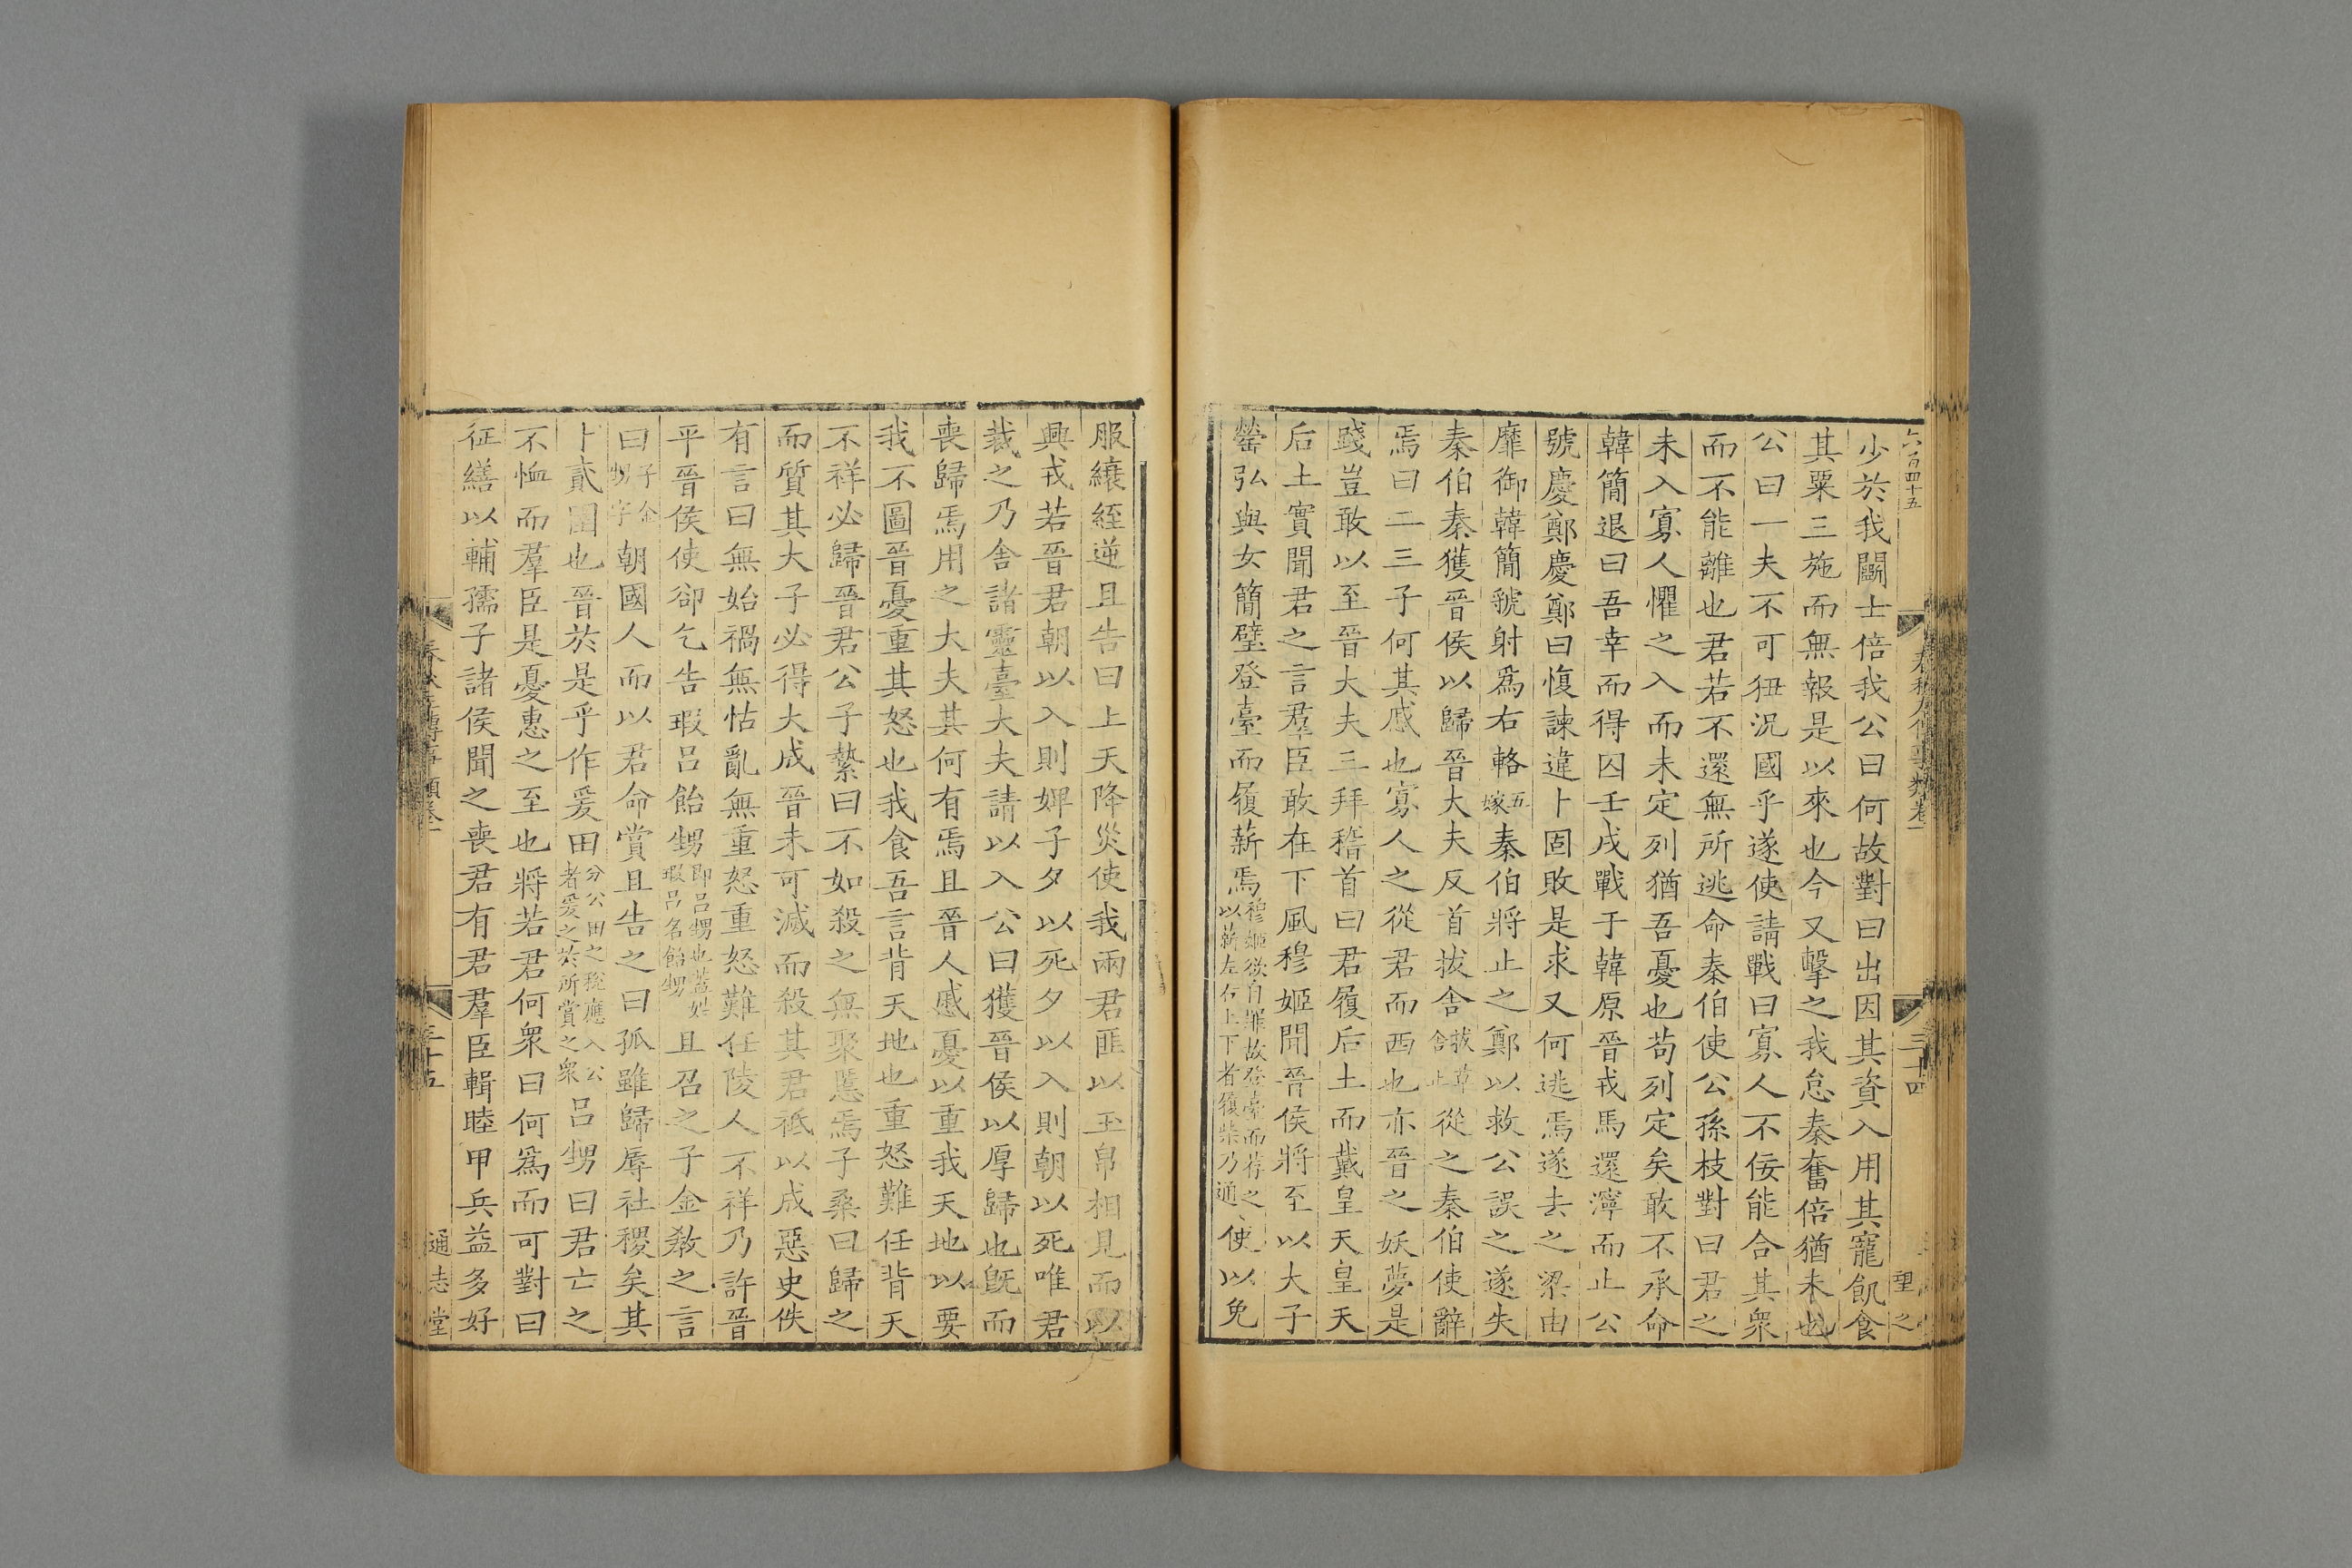 六百四十五
三十四
少於我鬭士倍我公曰何故對曰出因其資入用其寵飢食
其粟三施而無報是以來也今又擊之我怠秦奮倍猶未也
公曰一夫不可狃況國乎遂使請戰曰寡人不佞能合其衆
而不能離也君若不還無所逃命秦伯使公孫枝對曰君之
未入寡人懼之入而未定列猶吾憂也苟列定矣敢不承命
韓簡退曰吾幸而得囚壬戌戰于韓原晉戎馬還濘而止公
號慶鄭慶鄭曰愎諫違卜固敗是求又何逃焉遂去之梁由
靡御韓簡虢射爲右輅五嫁秦伯將止之鄭以救公誤之遂失
秦伯秦獲晉侯以歸晉大夫反首拔舍拔草舍止從之秦伯使辭
焉曰二三子何其慼也寡人之從君而西也亦晉之妖夢是
踐豈敢以至晉大夫三拜稽首曰君履后土而戴皇天皇天
后土實聞君之言羣臣敢在下風穆姬聞晉侯將至以大子
罃弘與女簡璧登臺而履薪焉穆姬欲自罪故登臺而荐之以薪左右上下者履柴乃通使以免
服縗絰逆且告曰上天降災使我兩君匪以玉帛相見而以
興戎若晉君朝以入則婢子夕以死夕以入則朝以死唯君
裁之乃舍諸靈臺大夫請以入公曰獲晉侯以厚歸也旣而
喪歸焉用之大夫其何有焉且晉人慼憂以重我天地以要
我不圖晉憂重其怒也我食吾言背天地也重怒難任背天
不祥必歸晉君公子縶曰不如殺之無聚慝焉子桑曰歸之
而質其大子必得大成晉未可滅而殺其君祗以成惡史佚
有言曰無始禍無怙亂無重怒重怒難任陵人不祥乃許晉
平晉侯使郤乞告瑕呂飴甥即呂甥也蓋姓瑕呂名飴甥且召之子金敎之言
曰子金甥字朝國人而以君命賞且告之曰孤雖歸辱社稷矣其
卜貳圉也晉於是乎作爰田分公田之稅應入公者爰之於所賞之衆呂甥曰君亡之
不恤而羣臣是憂惠之至也將若君何衆曰何爲而可對曰
征繕以輔孺子諸侯聞之喪君有君羣臣輯睦甲兵益多好
三十五
通志堂